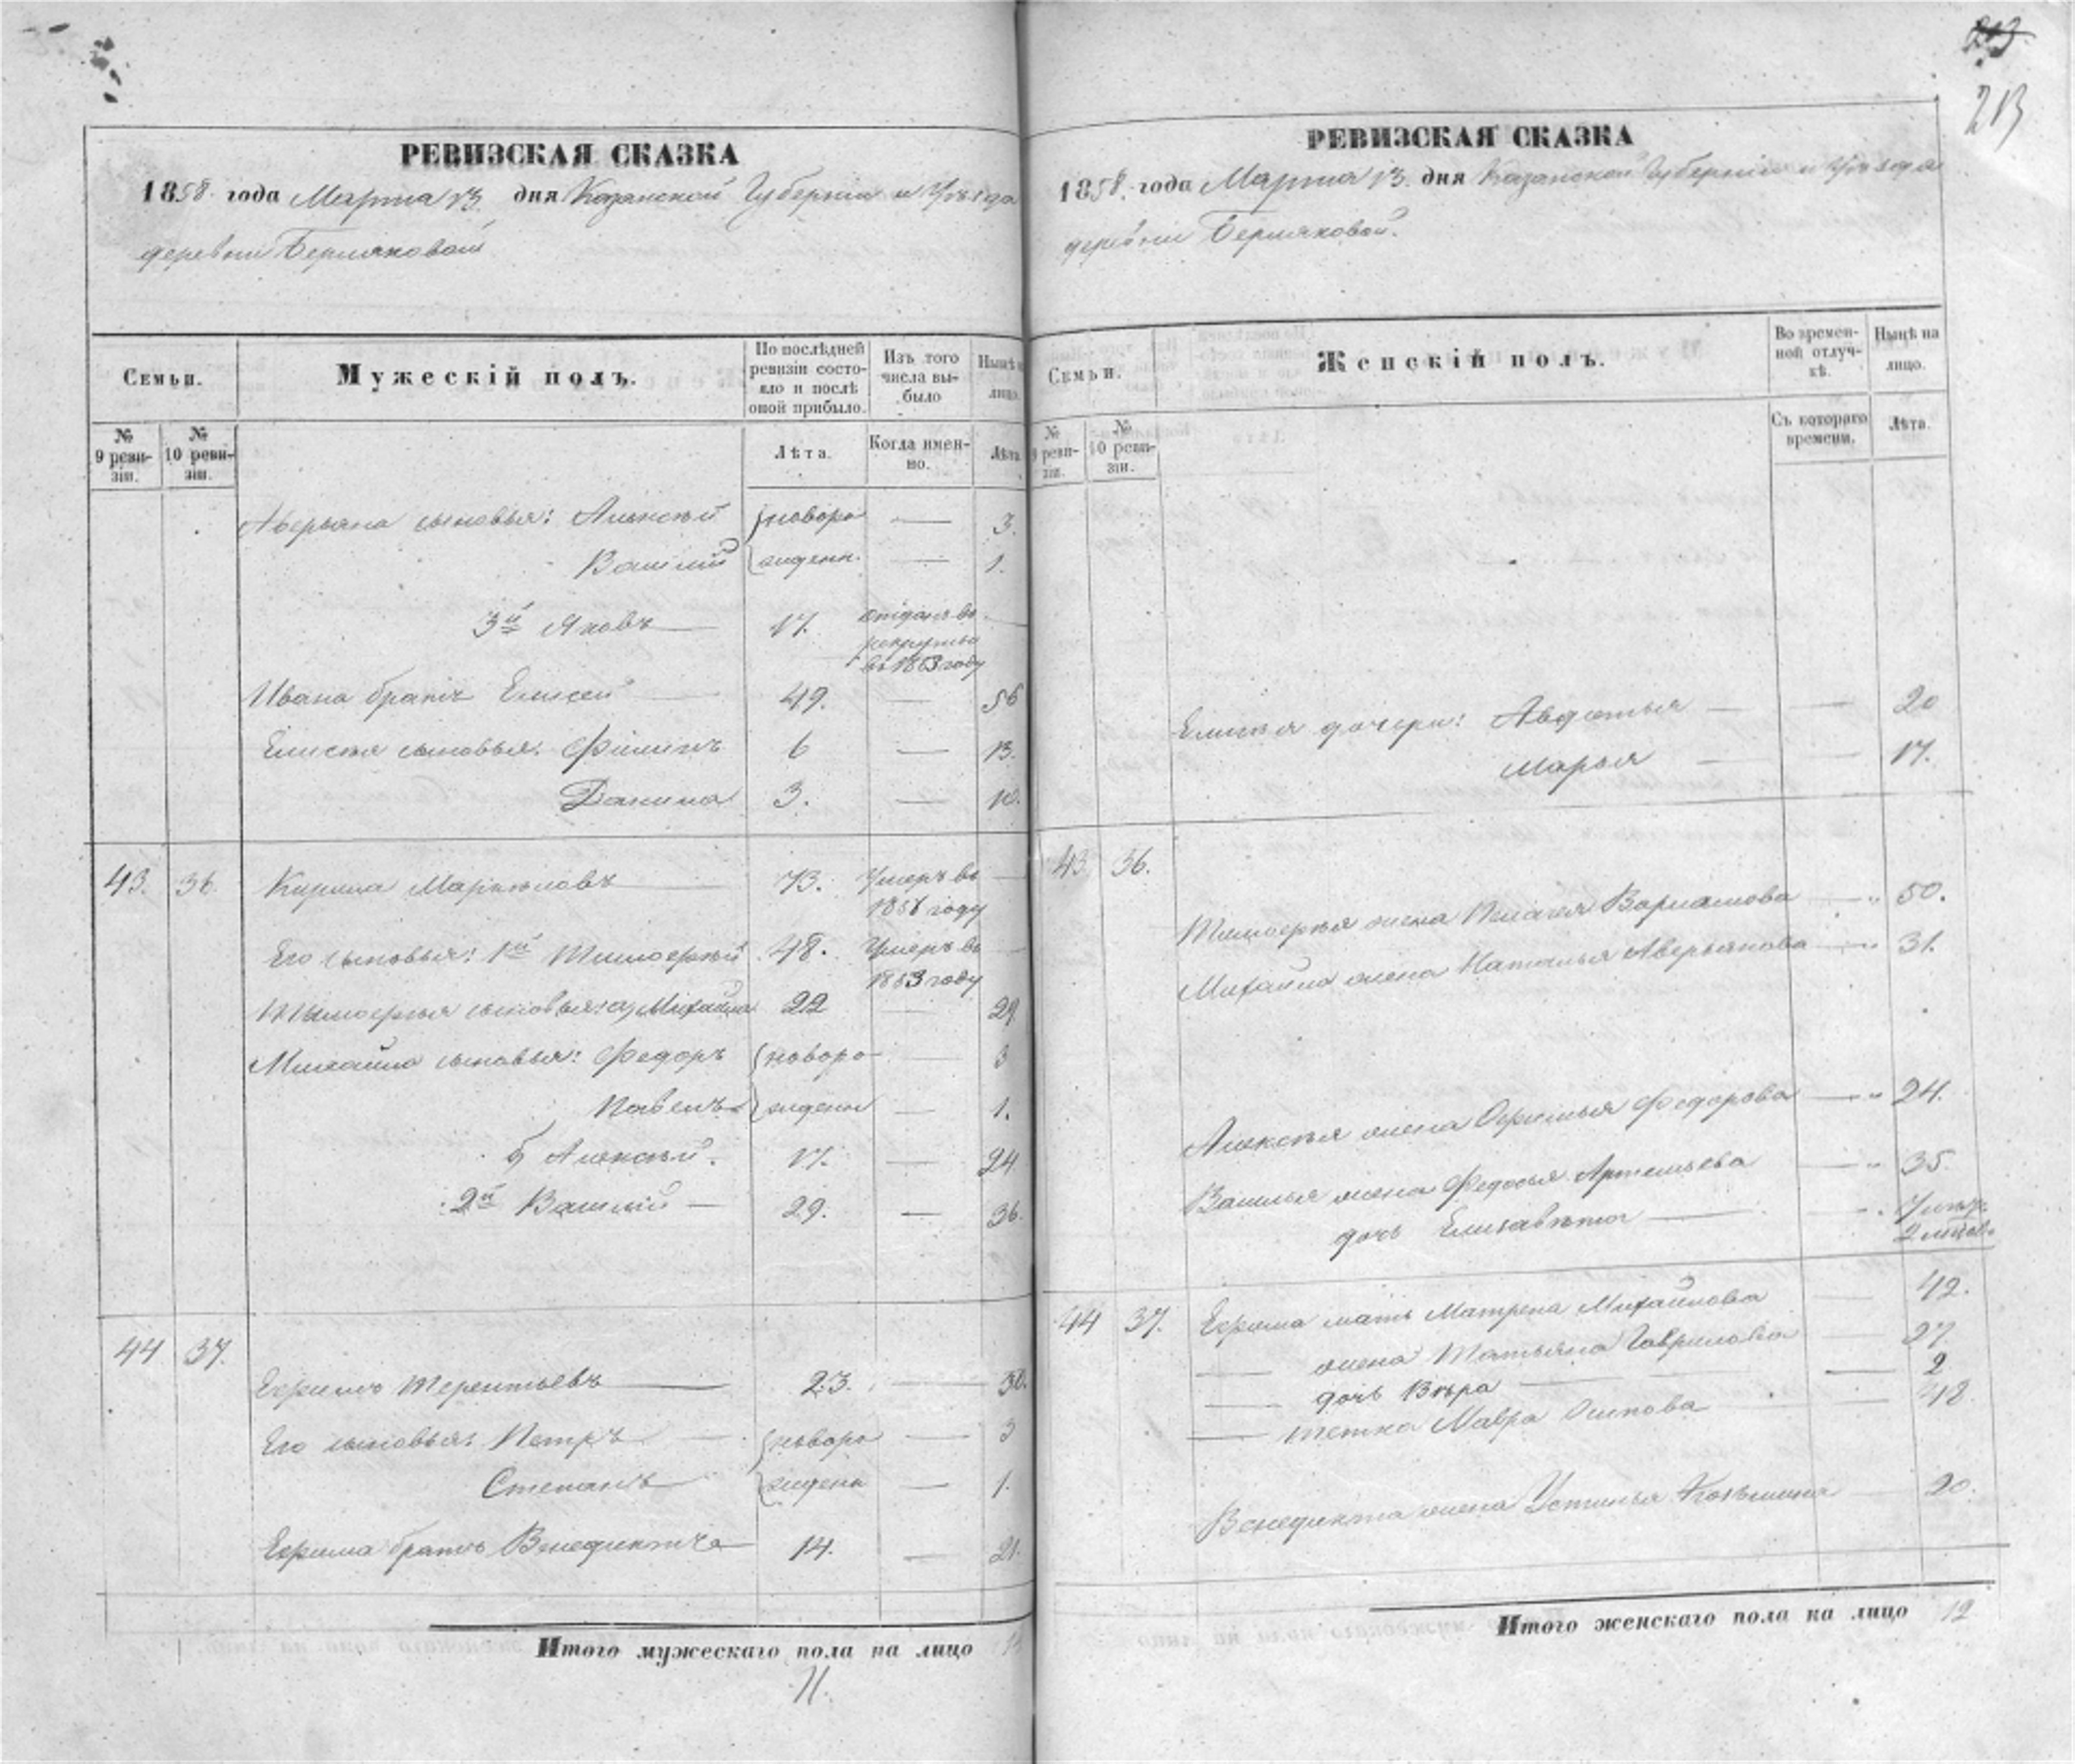 213
213
РЕВИЗСКАЯ СКАЗКА
1858 года Марта 13 дня Казанской Губерніи и Уѣзда
деревни
Семьи.
Мужескій полъ.
По послѣдней ревизіи состояло и послѣ оной прибыло.
Изъ того числа выбыло
Нынѣ на лицо.
№ 9 ревизіи.
№ 10 ревизіи.
Лѣта.
Когда именно.
Лѣта
Аверьяна сыновья: Алексѣй новоро — 3.
Василій жденн. — 1.
3й Яковъ 17. отданъ въ рекруты въ 1853 году —
Ивана братъ Елисей 49. — 56
Елисея сыновья: Филипъ 6 — 13.
Данила 3. — 10.
43. 36. Кирила 73. Умеръ въ 1856 году —
Его сыновья: 1й Тимофей 48. Умеръ въ 1853 году —
Тимофея сыновья: а, Михайла 22 — 29
Михайла сыновья: Федоръ новоро — 3
Павелъ жденн — 1.
б, Алексѣй. 17. — 24
2й Василій — 29. — 36.
44 37.
Ефимъ Терентьевъ 23. — 30.
Его сыновья: Петръ новоро — 3
Степанъ жденн — 1.
Ефима братъ Венедиктъ 14. — 21.
Итого мужескаго пола на лицо
11.
РЕВИЗСКАЯ СКАЗКА
1858 года Марта 13 дня Казанской Губерніи и Уѣзда
деревни
Семьи.
Женскій полъ.
Во временной отлучкѣ.
Нынѣ на лицо.
№ 9 ревизіи.
№ 10 ревизіи.
Съ котораго времени.
Лѣта.
Елисея дочери: Авдотья — — 20
Марья — — 17.
43. 36.
Тимофея жена Пелагея Варламова — 50.
Михайла жена Наталья Аверьянова — 31.
Алексѣя жена Офимья Федорова — 24.
Василья жена Федосья Артемьева — 35.
дочь Елизавета —
44 37. Ефима мать Матрена Михайлова — 42.
— жена Татьяна Гаврилова — 27.
— дочь Вѣра — — 2
— тетка Мавра Осипова — 48.
Венедикта жена Устинья Козьмина — 20.
Итого женскаго пола на лицо 12